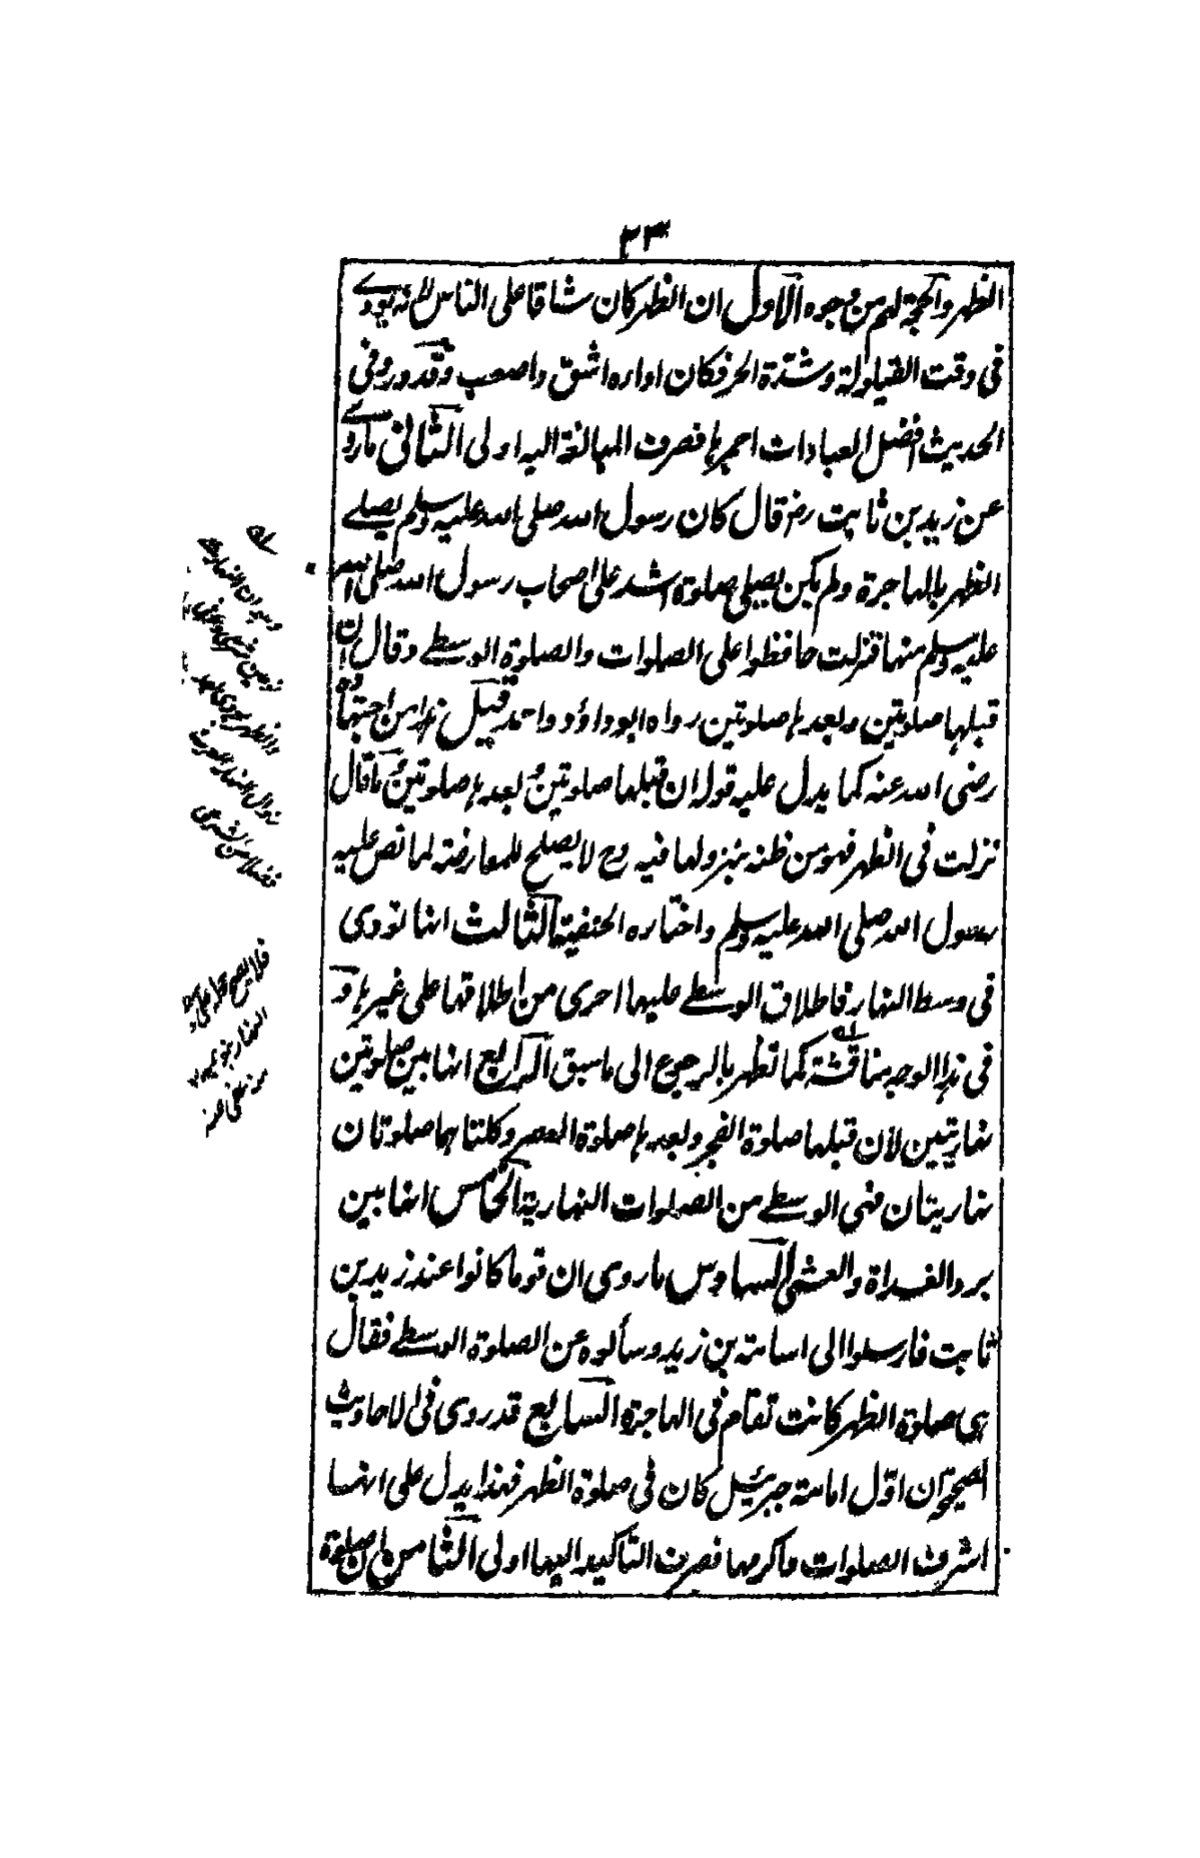 ٣٣
الظهر والحجة لهم من وجوه الاول ان الظهر كان شاقا على الناس لانه يؤدے
فى وقت القيلولة وشدة الحر فكان اداره اشق واصعب وقد ورد فى
الحديث افضل العبادات احمزها فصرف المبالغة اليه اولى الثانى ماروے
عن زيد بن ثابت رض قال كان رسول الله صلى الله عليه وسلم يصلے
الظهر بالهاجرة ولم يكن يصلى صلوة اشد على اصحاب رسول الله صلى الله
عليه وسلم منها فنزلت حافظوا على الصلوات والصلوة الوسطے وقال ان
قبلها صلوتين وبعدها صلوتين رواه ابو داؤد واحمد قيل هذا من اجتهاده
رضى الله عنه كما يدل عليه قوله ان قبلها صلوتين وبعدها صلوتين وما قال
نزلت فى الظهر فهو من ظنه بنزولها فيه وح لا يصلح للمعارضة لما نص عليه
رسول الله صلى الله عليه وسلم واختاره الحنفية الثالث انها تودى
فى وسط النهار فاطلاق الوسطے عليها احرى من اطلاقها على غيرها و
فى هذا الوجه مناقشة كما تظهر بالرجوع الى ما سبق الرابع انها بين صلوتين
نهاريتين لان قبلها صلوة الفجر وبعدها صلوة العصر وكلتاهما صلوتان
نهاريتان فهى الوسطے من الصلوات النهارية الخامس انها بين
برد الغداة والعشى السادس ما روى ان قوما كانوا عند زيد بن
ثابت فارسلوا الى اسامة بن زيد وسألوه عن الصلوة الوسطے فقال
هى صلوة الظهر كانت تقام فى الهاجرة السابع قد روى فى الاحاديث
الصحيحة ان اول امامة جبرئيل كان فى صلوة الظهر فهذا يدل على انها
اشرف الصلوات واكرمها فصرف التاكيد اليها اولى الثامن ان صلوة